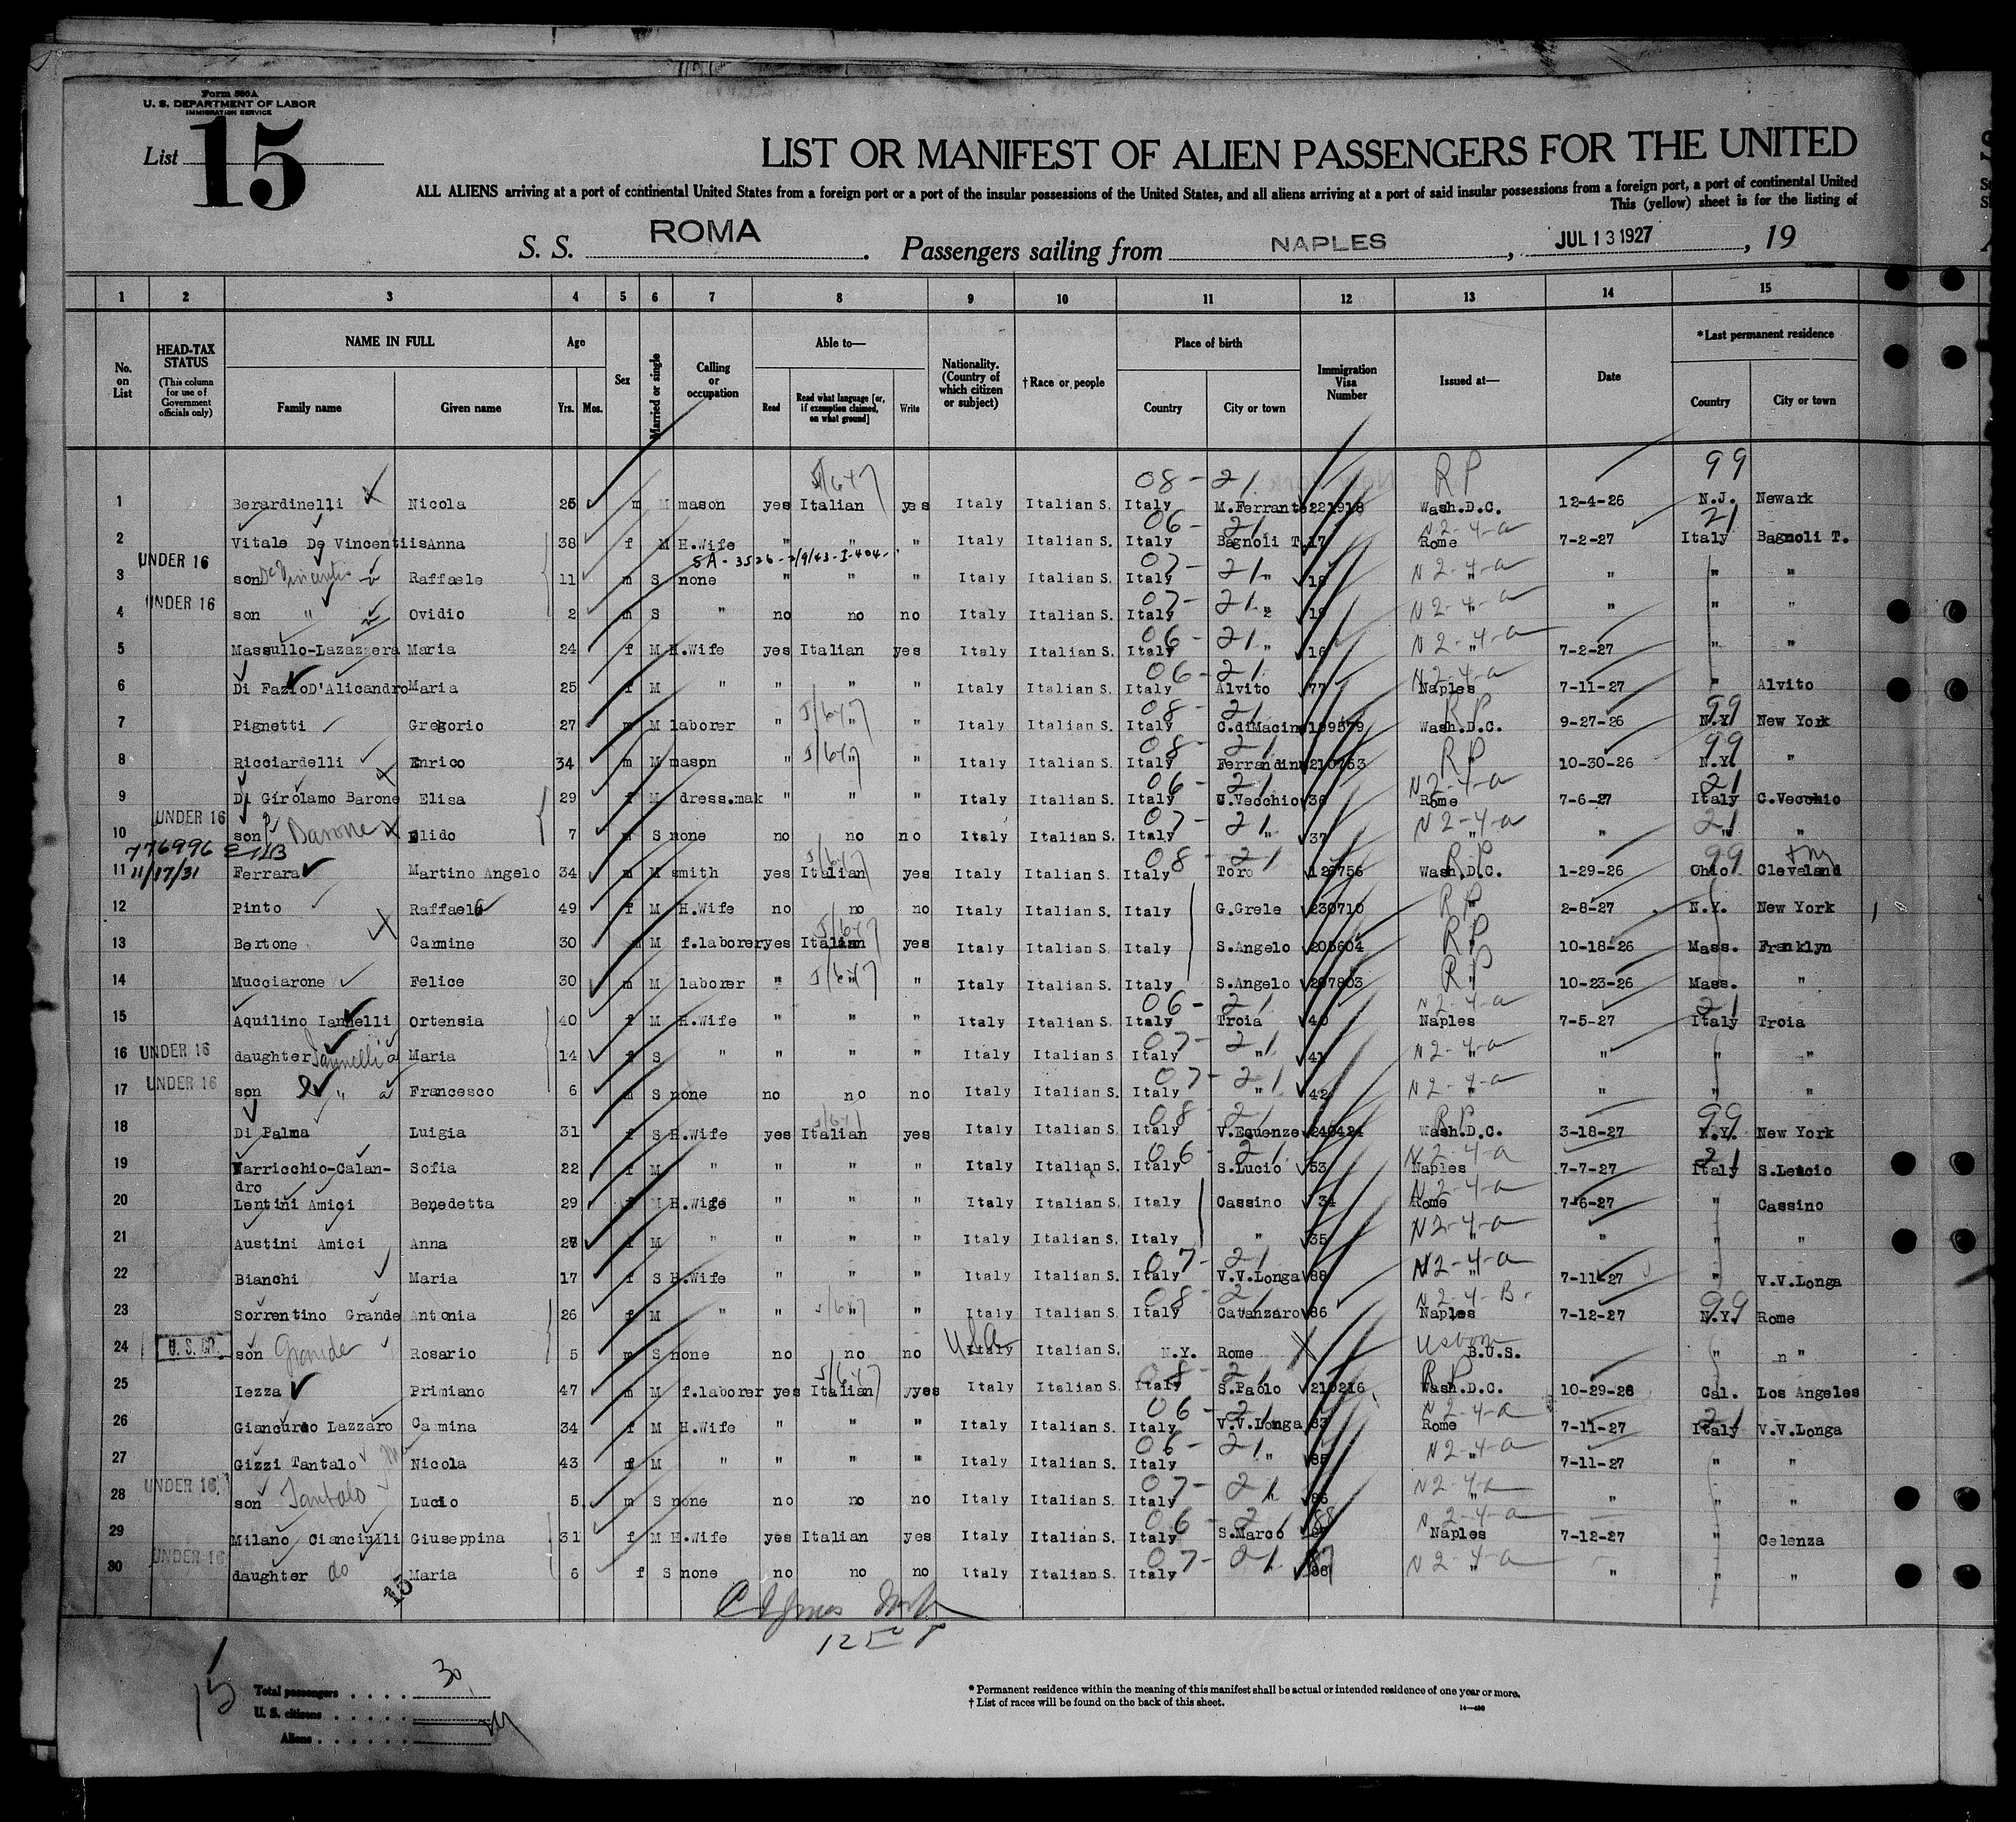 Form 500A
U. S. DEPARTMENT OF LABOR
IMMIGRATION SERVICE
List 15
LIST OR MANIFEST OF ALIEN PASSENGERS FOR THE UNITED
ALL ALIENS arriving at a port of continental United States from a foreign port or a port of the insular possessions of the United States, and all aliens arriving at a port of said insular possessions from a foreign port, a port of continental United
This (yellow) sheet is for the listing of
S. S. ROMA. Passengers sailing from NAPLES, JUL 13 1927, 19
1 2 3 4 5 6 7 8 9 10 11 12 13 14 15
No. on List
HEAD-TAX STATUS (This column for use of Government officials only)
NAME IN FULL
Family name Given name
Age
Yrs. Mos.
Sex
Married or single
Calling or occupation
Able to—
Read Read what language [or, if exemption claimed, on what ground] Write
Nationality. (Country of which citizen or subject)
†Race or people
Place of birth
Country City or town
Immigration Visa Number
Issued at—
Date
*Last permanent residence
Country City or town
08-21 RP 99
1 Berardinelli Nicola 26 m M mason yes Italian yes Italy Italian S. Italy M.Ferrante 221918 Wash.D.C. 12-4-26 N.J. Newark
06-21 N2-4-a 21
2 Vitale De Vincentiis Anna 38 f M H.Wife " " " Italy Italian S. Italy Bagnoli T. 17 Rome 7-2-27 Italy Bagnoli T.
UNDER 16 07-21 N2-4-a
3 son De Vincentis Raffaele 11 m S none " " " Italy Italian S. Italy " 18 " " " "
UNDER 16 07-21 N2-4-a
4 son " Ovidio 2 m S " no no no Italy Italian S. Italy " 19 " " " "
06-21 N2-4-a
5 Massullo-Lazazzera Maria 24 f M H.Wife yes Italian yes Italy Italian S. Italy " 16 " 7-2-27 " "
06-21 N2-4-a
6 Di Fazio D'Alicandro Maria 25 f M " " " " Italy Italian S. Italy Alvito 77 Naples 7-11-27 " Alvito
08-21 RP 99
7 Pignetti Gregorio 27 m M laborer " " " Italy Italian S. Italy C.diMacina 199579 Wash.D.C. 9-27-26 N.Y. New York
08-21 RP 99
8 Ricciardelli Enrico 34 m M mason " " " Italy Italian S. Italy Ferrandina 210763 " 10-30-26 N.Y. "
06-21 N2-4-a 21
9 Di Girolamo Barone Elisa 29 f M dress.mak " " " Italy Italian S. Italy C.Vecchio 36 Rome 7-6-27 Italy C.Vecchio
UNDER 16 07-21 N2-4-a 21
10 son Barone Elido 7 m S none no no no Italy Italian S. Italy " 37 " " " "
776996 08-21 RP 99
11 11/17/31 Ferrara Martino Angelo 34 m M smith yes Italian yes Italy Italian S. Italy Toro 128756 Wash.D.C. 1-29-26 Ohio Cleveland
12 Pinto Raffaela 49 f M H.Wife no no no Italy Italian S. Italy G.Grele 230710 RP 2-8-27 N.Y. New York
13 Bertone Carmine 30 m M f.laborer yes Italian yes Italy Italian S. Italy S.Angelo 205604 RP 10-18-26 Mass. Franklyn
14 Mucciarone Felice 30 m M laborer " " " Italy Italian S. Italy S.Angelo 207803 RP 10-23-26 Mass. "
06-21 N2-4-a 21
15 Aquilino Iannelli Ortensia 40 f M H.Wife " " " Italy Italian S. Italy Troia 40 Naples 7-5-27 Italy Troia
UNDER 16 07-21 N2-4-a
16 daughter Iannelli Maria 14 f S " " " " Italy Italian S. Italy " 41 " " " "
UNDER 16 07-21 N2-4-a
17 son " Francesco 6 m S none no no no Italy Italian S. Italy " 42 " " " "
08-21 RP 99
18 Di Palma Luigia 31 f S H.Wife yes Italian yes Italy Italian S. Italy V.Equenze 240424 Wash.D.C. 3-18-27 N.Y. New York
06-21 N2-4-a 21
19 Varricchio-Calan- Sofia 22 f M " " " " Italy Italian S. Italy S.Lucio 53 Naples 7-7-27 Italy S.Leucio
dro
20 Lentini Amici Benedetta 29 f M H.Wige " " " Italy Italian S. Italy Cassino 34 Rome N2-4-a 7-6-27 " Cassino
21 Austini Amici Anna f M " " " " Italy Italian S. Italy " 35 N2-4-a " " "
07-21 N2-4-a
22 Bianchi Maria 17 f S H.Wife " " " Italy Italian S. Italy V.V.Longa 88 " 7-11-27 " V.V.Longa
08-21 N2-4-B. 99
23 Sorrentino Grande Antonia 26 f M " " " " Italy Italian S. Italy Catanzaro 86 Naples 7-12-27 N.Y. Rome
U.S.A. US born
24 son Grande Rosario 5 m S none no no no Italy Italian S. N.Y. Rome B.U.S. " "
08-21 RP
25 Iezza Primiano 47 m M f.laborer yes Italian yes Italy Italian S. Italy S.Paolo 210216 Wash.D.C. 10-29-26 Cal. Los Angeles
06-21 N2-4-a 21
26 Giancurdo Lazzaro Carmina 34 f M H.Wife " " " Italy Italian S. Italy V.V.Longa 83 Rome 7-11-27 Italy V.V.Longa
06-21 N2-4-a
27 Gizzi Tantalo Nicola 43 f M " " " " Italy Italian S. Italy " 85 " 7-11-27 " "
UNDER 16 07-21 N2-4-a
28 son Tantalo Lucio 5 m S none no no no Italy Italian S. Italy " 86 " " " "
06-21 N2-4-a
29 Milano Cianciulli Giuseppina 31 f M H.Wife yes Italian yes Italy Italian S. Italy S.Marco Naples 7-12-27 " Celenza
UNDER 16 07-21 N2-4-a
30 daughter do Maria 6 f S none no no no Italy Italian S. Italy " " " "
15
Total passengers . . . . 30
U. S. citizens . . . . .
Aliens . . . . . .
* Permanent residence within the meaning of this manifest shall be actual or intended residence of one year or more.
† List of races will be found on the back of this sheet.